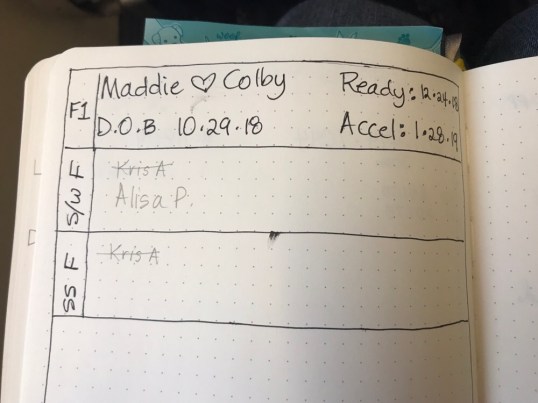 F1
Maddie ♡ Colby
Ready: 12.24.18
D.O.B 10.29.18
Accel: 1.28.19
S/W F
Kris A
Alisa P.
SS F
Kris A